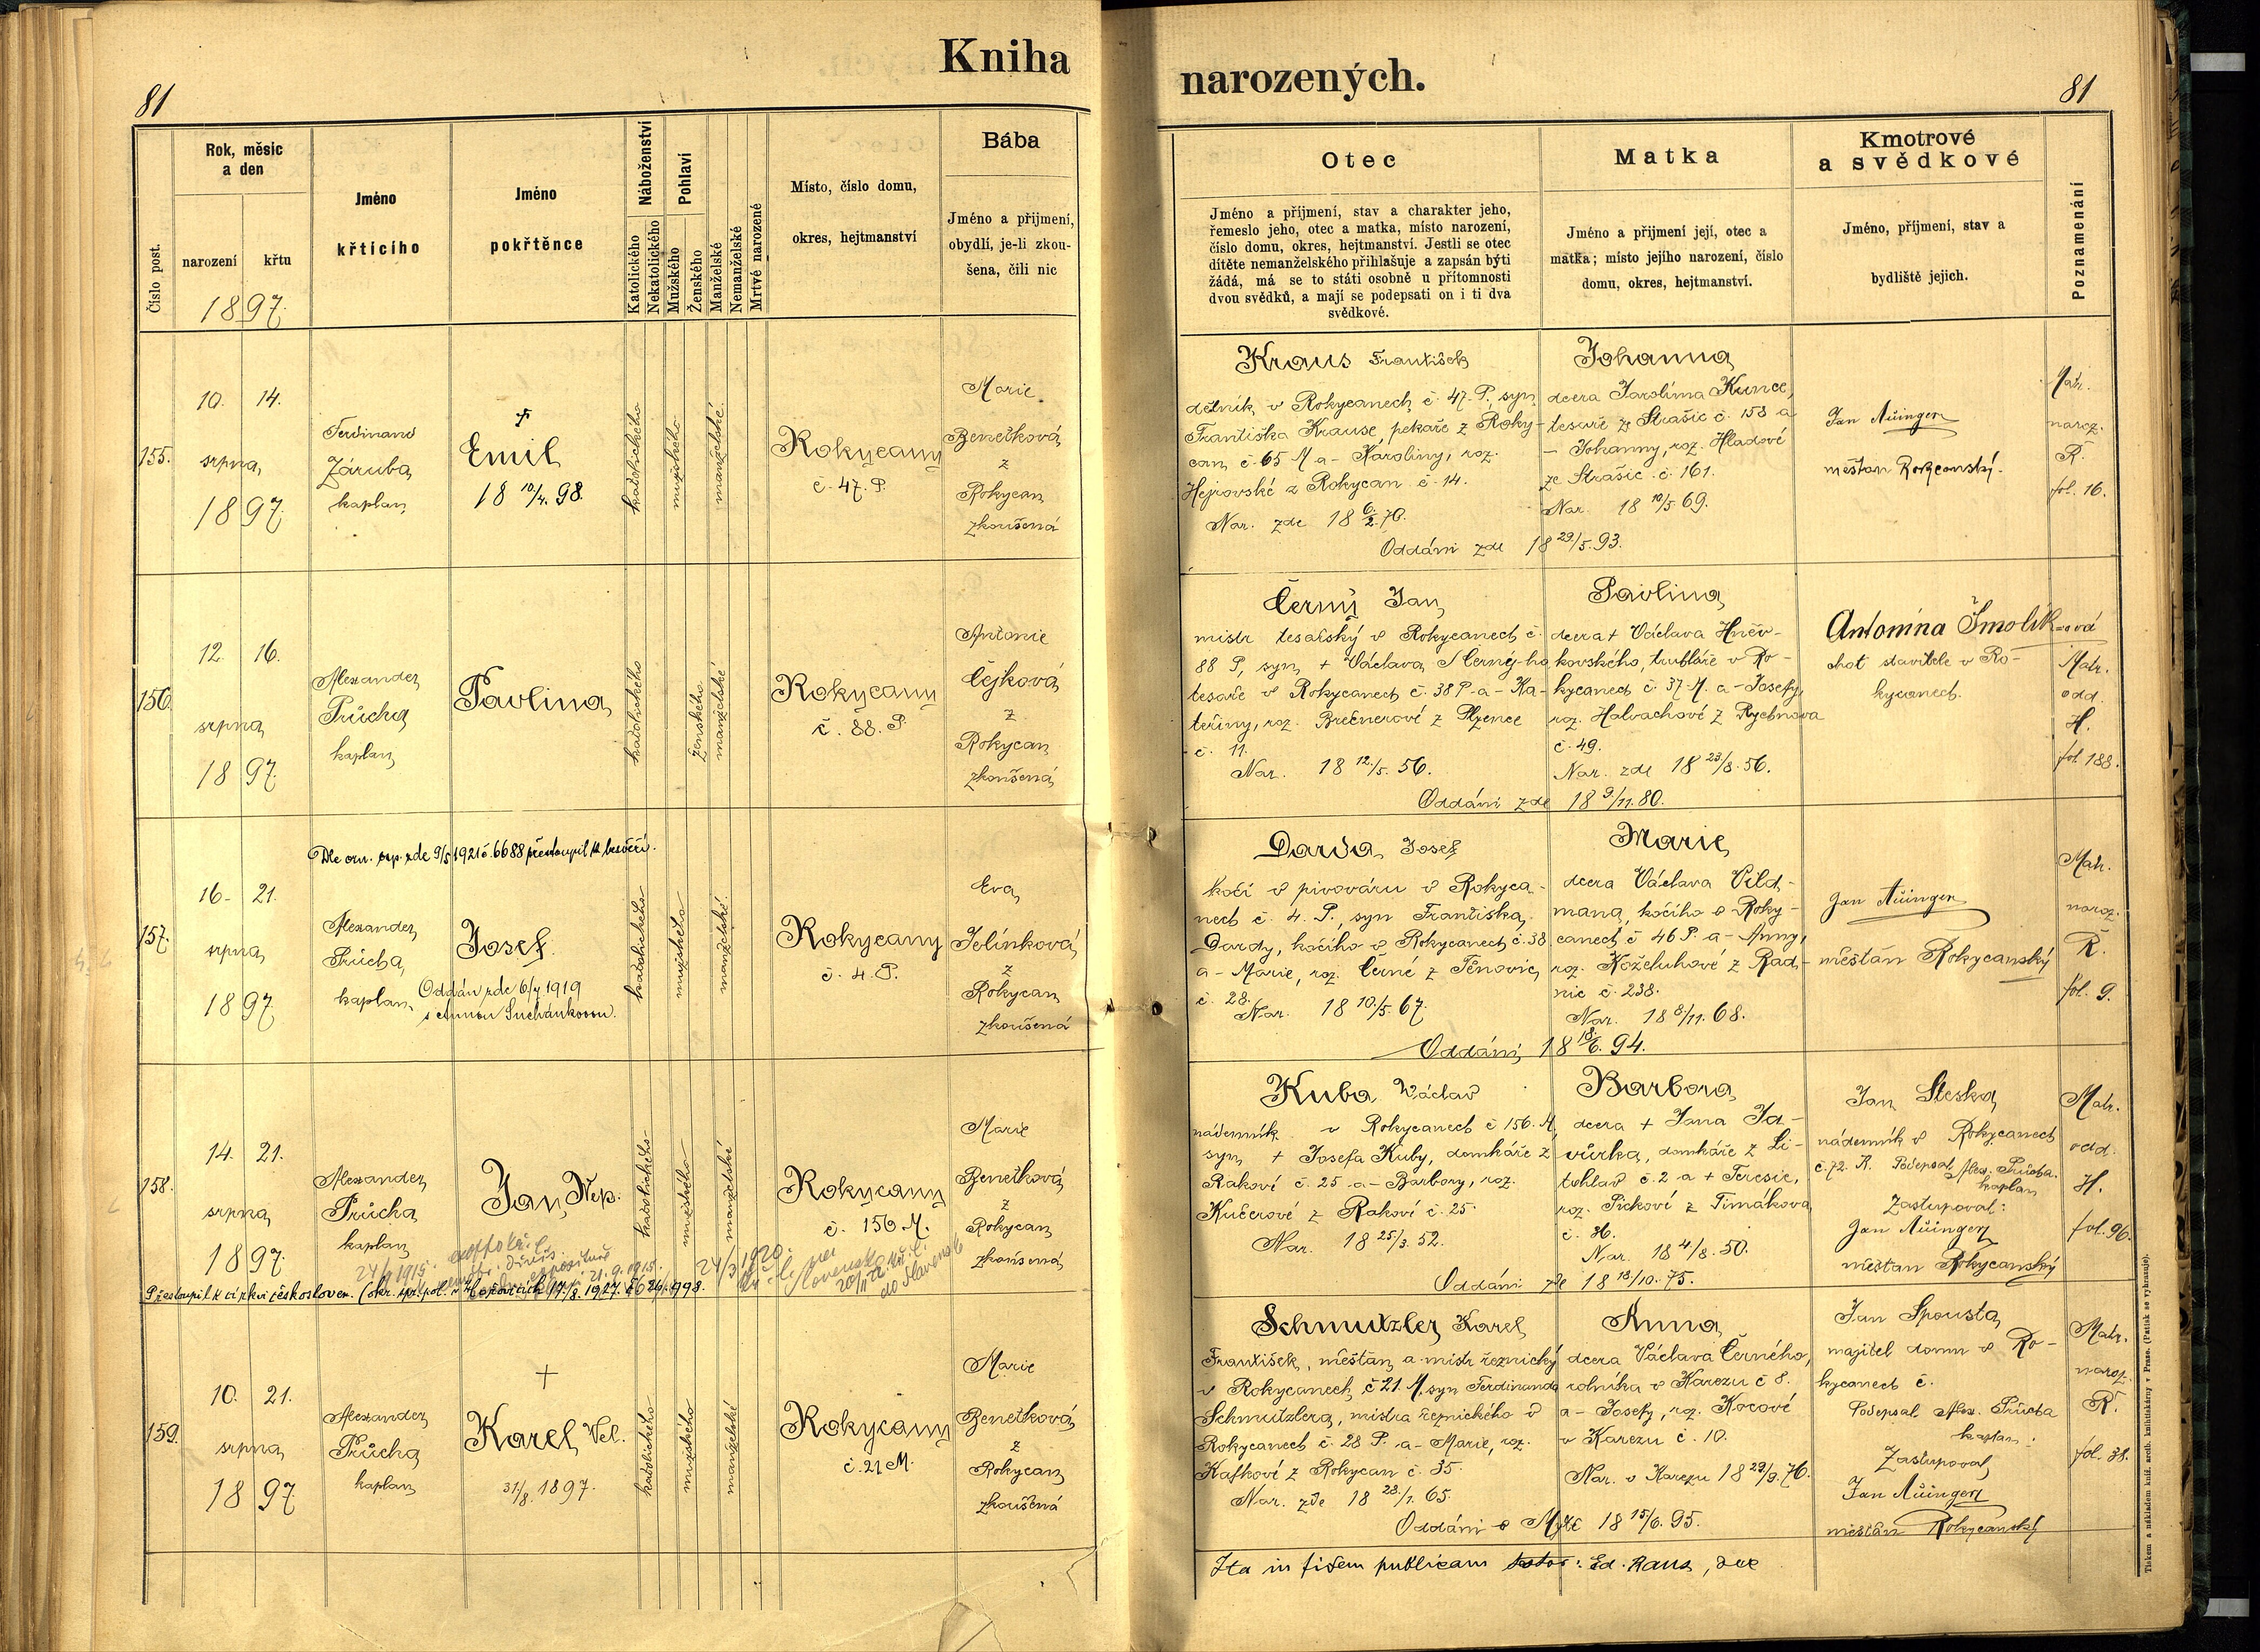 Kniha
narozených.
81
81
Číslo post.
Rok, měsíc
a den
narození
křtu
1897.
Jméno
křtícího
Jméno
pokřtěnce
Náboženství
Katolického
Nekatolického
Pohlaví
Mužského
Ženského
Manželské
Nemanželské
Mrtvě narozené
Místo, číslo domu,
okres, hejtmanství
Bába
Jméno a přijmení,
obydlí, je-li zkou-
šena, čili nic
Otec
Jméno a příjmení, stav a charakter jeho,
řemeslo jeho, otec a matka, místo narození,
číslo domu, okres, hejtmanství. Jestli se otec
dítěte nemanželského přihlašuje a zapsán býti
žádá, má se to státi osobně u přítomnosti
dvou svědků, a mají se podepsati on i ti dva
svědkové.
Matka
Jméno a přijmení její, otec a
matka; místo jejího narození, číslo
domu, okres, hejtmanství.
Kmotrové
a svědkové
Jméno, příjmení, stav a
bydliště jejich.
Poznamenání
155.
10. 14.
srpna
1897.
Ferdinand
Záruba,
kaplan
†
Emil
18 10/4. 98.
katolického
mužského
manželské
Rokycany
č. 47. P.
Marie
Benetková
z
Rokycan
zkoušená
Kraus František
dělník v Rokycanech č. 47. P., syn
Františka Krause, pekaře z Roky-
can č. 65 M a Karoliny, roz.
Hejrovské z Rokycan č. 14.
Nar. zde 18 6./2. 70.
Johanna
dcera Jarolíma Kunce,
tesaře ze Strašic č. 158 a
Johanny, roz. Hladové
ze Strašic č. 161.
Nar. 18 10/5. 69.
Oddáni zde 18 29/5. 93.
Jan Aüinger
měšťan Rokycanský.
Matr.
naroz.
R.
fol. 16.
156.
12. 16.
srpna
1897.
Alexander
Průcha
kaplan
Pavlina
katolického
ženského
manželské
Rokycany
č. 88. P.
Antonie
Čejková
z
Rokycan
zkoušená
Černý Jan,
mistr tesařský v Rokycanech č.
88 P., syn † Václava Černého
tesaře v Rokycanech č. 38 P. a Ka-
teřiny, roz. Brečnerové z Plzence
č. 11.
Nar. 18 12./5. 56.
Pavlina
dcera † Václava Hněv-
kovského, truhláře v Ro-
kycanech č. 37 M. a Josefy,
roz. Halvachové z Rychnova
č. 49.
Nar. zde 18 23/8. 56.
Oddáni zde 18 9/11. 80.
Antonína Šmolík-ová
choť stavitele v Ro-
kycanech.
Matr.
odd.
H.
fol. 188.
Dle ozn. zde 9/5 1921 č. 6688 přestoupil k bezvěří.
157.
16. 21.
srpna
1897
Alexander
Průcha,
kaplan
Josef.
Oddán zde 6/7 1919
s Annou Suchánkovou.
katolického
mužského
manželské
Rokycany
č. 4. P.
Eva
Jelínková
z
Rokycan
zkoušená
Darda Josef
kočí v pivováru v Rokyca-
nech č. 4. P., syn Františka
Dardy, kočího v Rokycanech č. 38
a Marie, roz. Černé z Těnovic
č. 28.
Nar. 18 10./5. 67.
Marie
dcera Václava Vild-
mana, kočího v Roky-
canech č 46 P. a Anny,
roz. Koželuhové z Rad-
nic č. 238.
Nar. 18 8/11. 68.
Oddáni 18 18./6. 94.
Jan Aüinger
měšťan Rokycanský
Matr.
naroz.
R.
fol. 9.
158.
14. 21.
srpna
1897.
Alexander
Průcha
kaplan
Jan Nep.
katolického
mužského
manželské
Rokycany
č. 156 M.
Marie
Benetková
z
Rokycan
zkoušená
Přestoupil k církvi českosloven. (okr. spr. pol. v Hořovicích 17./8. 1927. č. 26.998.
Kuba Václav
nádenník v Rokycanech č 156. M,
syn † Josefa Kuby, domkáře z
Rakové č. 25 a Barbory, roz.
Kučerové z Rakové č. 25.
Nar. 18 25/3. 52.
Barbora
dcera † Jana Ja-
vůrka, domkáře z Li-
tohlav č. 2 a † Terezie,
roz. Píckové z Timákova
č. 36.
Nar. 18 4/8. 50.
Oddáni zde 18 18/10. 75.
Jan Steska
nádenník v Rokycanech
č. 72. R. Podepsal Alex. Průcha.
kaplan
Zastupoval:
Jan Aüinger
měšťan Rokycanský
Matr.
odd.
H.
fol. 96.
159.
10. 21.
srpna
1897
Alexander
Průcha
kaplan
†
Karel Vel.
31/8. 1897.
katolického
mužského
manželské
Rokycany
č. 21 M.
Marie
Benetková
z
Rokycan
zkoušená
Schmutzler Karel
František, měšťan a mistr řeznický
v Rokycanech č 21. M, syn Ferdinanda
Schmutzlera, mistra řeznického v
Rokycanech č. 28 P. a Marie, roz.
Kafkové z Rokycan č. 35.
Nar. zde 18 28./1. 65.
Anna
dcera Václava Černého,
rolníka v Karezu č 8.
a Josefy, roz. Kocové
v Karezu č. 10.
Nar. v Karezu 18 29/9. 76.
Oddáni v Mýtě 18 15/6. 95.
Jan Spousta
majitel domu v Ro-
kycanech č.
Podepsal Alex. Průcha
kaplan:
Zastupoval
Jan Aüinger
měšťan Rokycanský
Matr.
naroz.
R.
fol. 38.
Ita in fidem publicam testor: Ed. Raus,
Tiskem a nákladem kníž. arcib. knihtiskárny v Praze. (Patisk se vyhražuje).